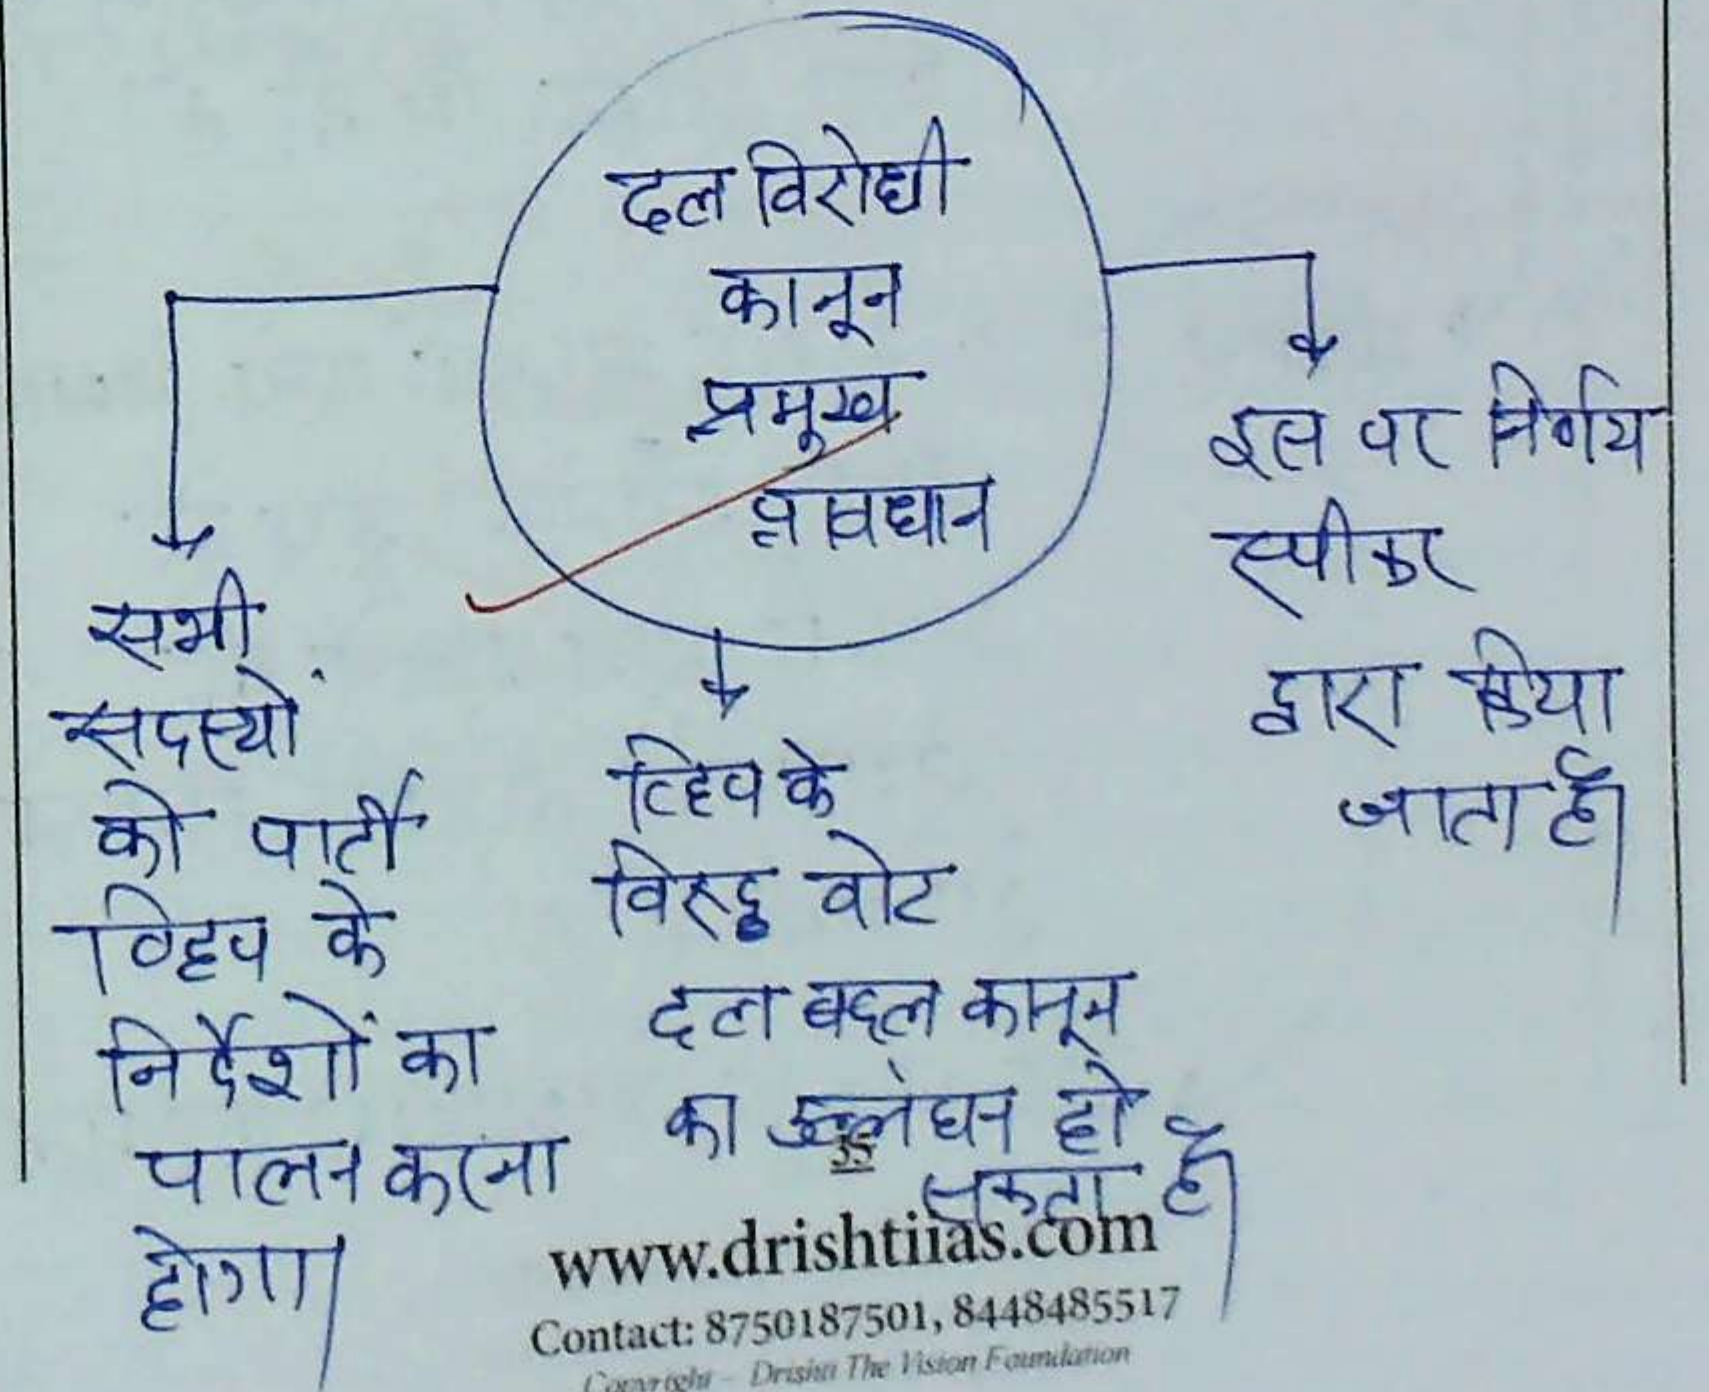 दल विरोधी
कानून
प्रमुख
प्रावधान
सभी
सदस्यों
को पार्टी
व्हिप के
निर्देशों का
पालन करना
होगा।
व्हिप के
विरुद्ध वोट
दल बदल कानून
का उल्लंघन हो
सकता है।
इस पर निर्णय
स्पीकर
द्वारा किया
जाता है।
35
www.drishtiias.com
Contact: 8750187501, 8448485517
Copyright – Drishti The Vision Foundation